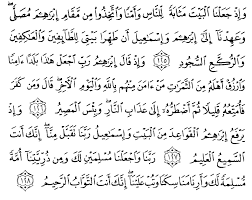 وَإِذْ جَعَلْنَا ٱلْبَيْتَ مَثَابَةً لِّلنَّاسِ وَأَمْنًا وَٱتَّخِذُوا۟ مِن مَّقَامِ إِبْرَٰهِـۧمَ مُصَلًّى
وَعَهِدْنَآ إِلَىٰٓ إِبْرَٰهِـۧمَ وَإِسْمَٰعِيلَ أَن طَهِّرَا بَيْتِىَ لِلطَّآئِفِينَ وَٱلْعَٰكِفِينَ
وَٱلرُّكَّعِ ٱلسُّجُودِ ١٢٥ وَإِذْ قَالَ إِبْرَٰهِـۧمُ رَبِّ ٱجْعَلْ هَٰذَا بَلَدًا ءَامِنًا
وَٱرْزُقْ أَهْلَهُۥ مِنَ ٱلثَّمَرَٰتِ مَنْ ءَامَنَ مِنْهُم بِٱللَّهِ وَٱلْيَوْمِ ٱلْءَاخِرِ قَالَ وَمَن كَفَرَ
فَأُمَتِّعُهُۥ قَلِيلًا ثُمَّ أَضْطَرُّهُۥٓ إِلَىٰ عَذَابِ ٱلنَّارِ وَبِئْسَ ٱلْمَصِيرُ ١٢٦ وَإِذْ
يَرْفَعُ إِبْرَٰهِـۧمُ ٱلْقَوَاعِدَ مِنَ ٱلْبَيْتِ وَإِسْمَٰعِيلُ رَبَّنَا تَقَبَّلْ مِنَّآ إِنَّكَ أَنتَ
ٱلسَّمِيعُ ٱلْعَلِيمُ ١٢٧ رَبَّنَا وَٱجْعَلْنَا مُسْلِمَيْنِ لَكَ وَمِن ذُرِّيَّتِنَآ أُمَّةً
مُّسْلِمَةً لَّكَ وَأَرِنَا مَنَاسِكَنَا وَتُبْ عَلَيْنَآ إِنَّكَ أَنتَ ٱلتَّوَّابُ ٱلرَّحِيمُ ١٢٨